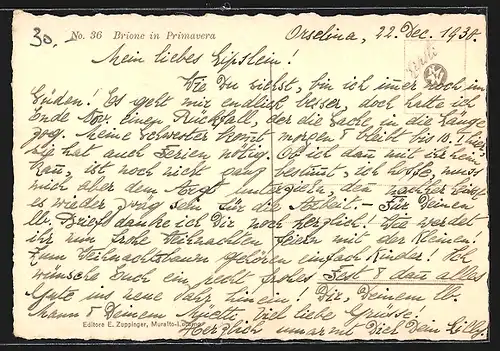 30.
No. 36 Brione in Primavera
Orselina, 22. Dez. 1930.
Mein liebes Lipslein!
Wie Du siehst, bin ich immer noch im
Süden! Es geht mir endlich besser, doch hatte ich
Ende Nov. einen Rückfall, der die Sache in die Länge
zog. Meine Schwester kommt morgen & bleibt bis 10. I. hier,
sie hat auch Ferien nötig. Ob ich dann mit ihr heim
kann, ist noch nicht ganz bestimmt, ich hoffe, muss
mich aber dem Arzt unterziehen, denn nachher heisst
es wieder zwäg sein für die Arbeit. – Für Deinen
lb. Brief danke ich Dir noch herzlich! Wie werdet
ihr nun frohe Weihnachten feiern mit der Kleinen!
Zum Weihnachtsbaum gehören einfach Kinder! Ich
wünsche Euch ein recht frohes Fest & dann alles
Gute ins neue Jahr hinein! Dir, Deinem lb.
Mann & Deinem Müetti viel liebe Grüsse!
Editore E. Zuppinger, Muralto-Locarno
Herzlich umarmt Dich Dein Lilly